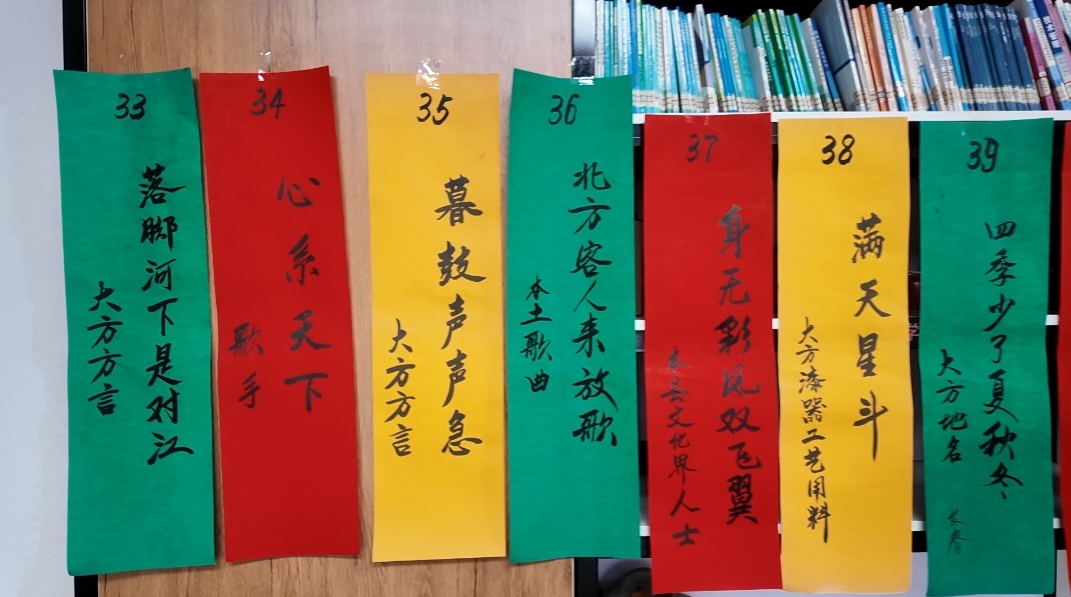 33
落脚河下是对江
大方方言
34
心系天下
歌手
35
暮鼓声声急
大方方言
36
北方客人来放歌
本土歌曲
37
身无彩凤双飞翼
本县文化界人士
38
满天星斗
大方漆器工艺用料
39
四季少了夏秋冬
大方地名
长春